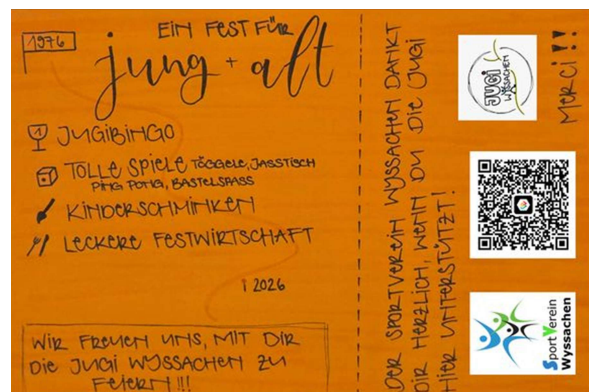 1976
EIN FEST FÜR
jung + alt
JUGIBINGO
TOLLE SPIELE TÖGGELE, JASSTISCH
PING PONG, BASTELSPASS
KINDERSCHMINKEN
LECKERE FESTWIRTSCHAFT
! 2026
WIR FREUEN UNS, MIT DIR
DIE JUGI WYSSACHEN ZU
FEIERN!!!
DER SPORTVEREIN WYSSACHEN DANKT
DIR HERZLICH, WENN DU DIE JUGI
HIER UNTERSTÜTZT!
JUGI
WYSSACHEN
MERCI!!
Sport Verein
Wyssachen